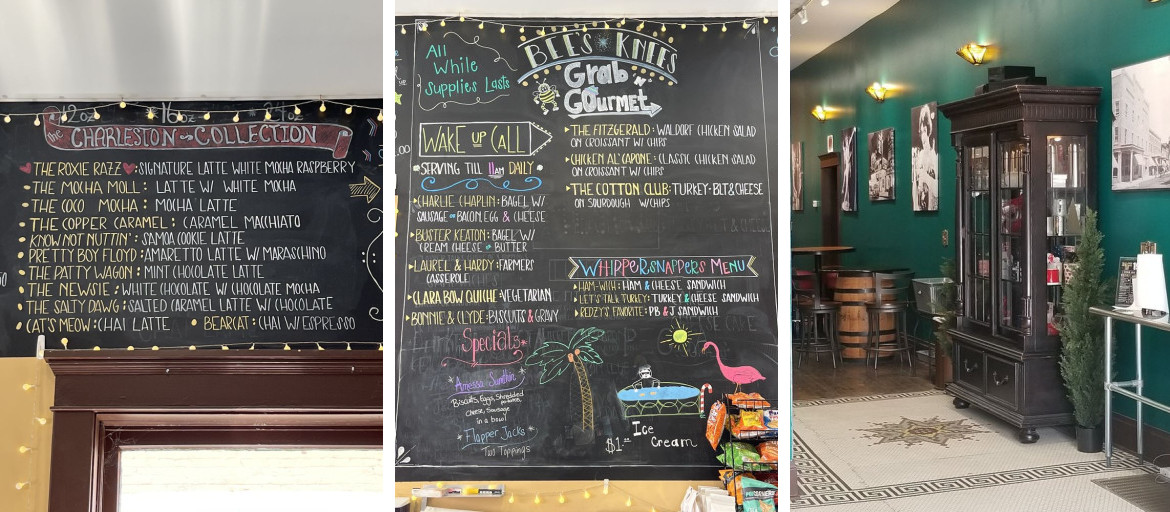 12oz 16oz 24oz
the CHARLESTON COLLECTION
THE ROXIE RAZZ : SIGNATURE LATTE WHITE MOCHA RASPBERRY
• THE MOCHA MOLL : LATTE W/ WHITE MOCHA
• THE COCO MOCHA : MOCHA LATTE
• THE COPPER CARAMEL : CARAMEL MACCHIATO
• KNOW NOT NUTTIN' : SAMOA COOKIE LATTE
• PRETTY BOY FLOYD : AMARETTO LATTE W/ MARASCHINO
• THE PATTY WAGON : MINT CHOCOLATE LATTE
• THE NEWSIE : WHITE CHOCOLATE W/ CHOCOLATE MOCHA
• THE SALTY DAWG : SALTED CARAMEL LATTE W/ CHOCOLATE
• CAT'S MEOW : CHAI LATTE • BEARCAT : CHAI W/ ESPRESSO
All
While
Supplies Lasts
BEE'S KNEES
Grab 'n'
GOurmet
WAKE UP CALL
• SERVING TILL 11am DAILY •
CHARLIE CHAPLIN : BAGEL W/
SAUSAGE OR BACON, EGG & CHEESE
BUSTER KEATON : BAGEL W/
CREAM CHEESE OR BUTTER
LAUREL & HARDY : FARMERS
CASSEROLE
CLARA BOW QUICHE : VEGETARIAN
BONNIE & CLYDE : BISCUITS & GRAVY
THE FITZGERALD : WALDORF CHICKEN SALAD
ON CROISSANT W/ CHIPS
CHICKEN AL'CAPONE : CLASSIC CHICKEN SALAD
ON CROISSANT W/ CHIPS
THE COTTON CLUB : TURKEY-BLT & CHEESE
ON SOURDOUGH W/CHIPS
WHIPPERSNAPPERS MENU
HAM-WICH : HAM & CHEESE SANDWICH
LET'S TALK TURKEY : TURKEY & CHEESE SANDWICH
REDZY'S FAVORITE : PB & J SANDWICH
Specials
Amessa Sumthin
Biscuits, Eggs, Shredded
potatoes,
Cheese, Sausage
in a bowl
Flapper Jacks
Two Toppings
Ice
Cream
$1